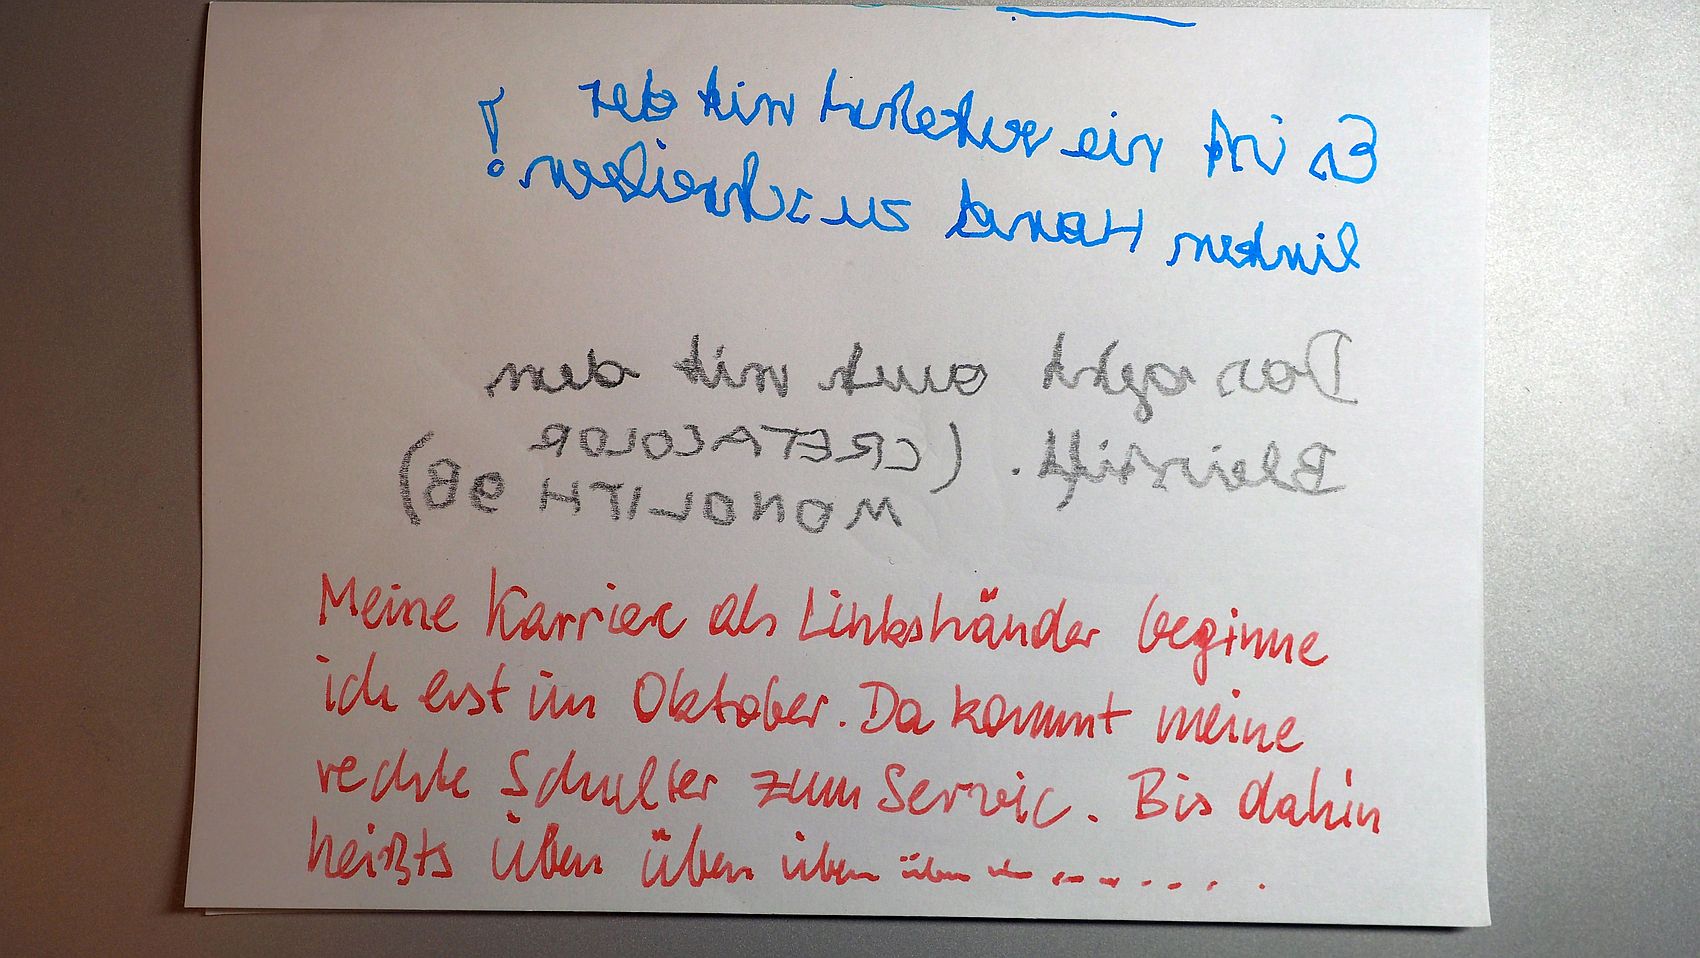 Es ist nie verkehrt mit der
linken Hand zu schreiben!
Das geht auch mit dem
Bleistift. (CRETACOLOR
MONOLITH 9B)
Meine Karriere als Linkshänder beginne
ich erst im Oktober. Da kommt meine
rechte Schulter zum Service. Bis dahin
heißts üben üben üben üben ........